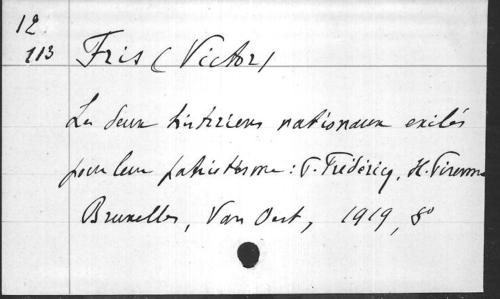 12
113
Fris (Victor)
Les deux historiens nationaux exilés
pour leur patriotisme : P. Frédéricq, H. Pirenne
Bruxelles, Van Oest, 1919, 8°